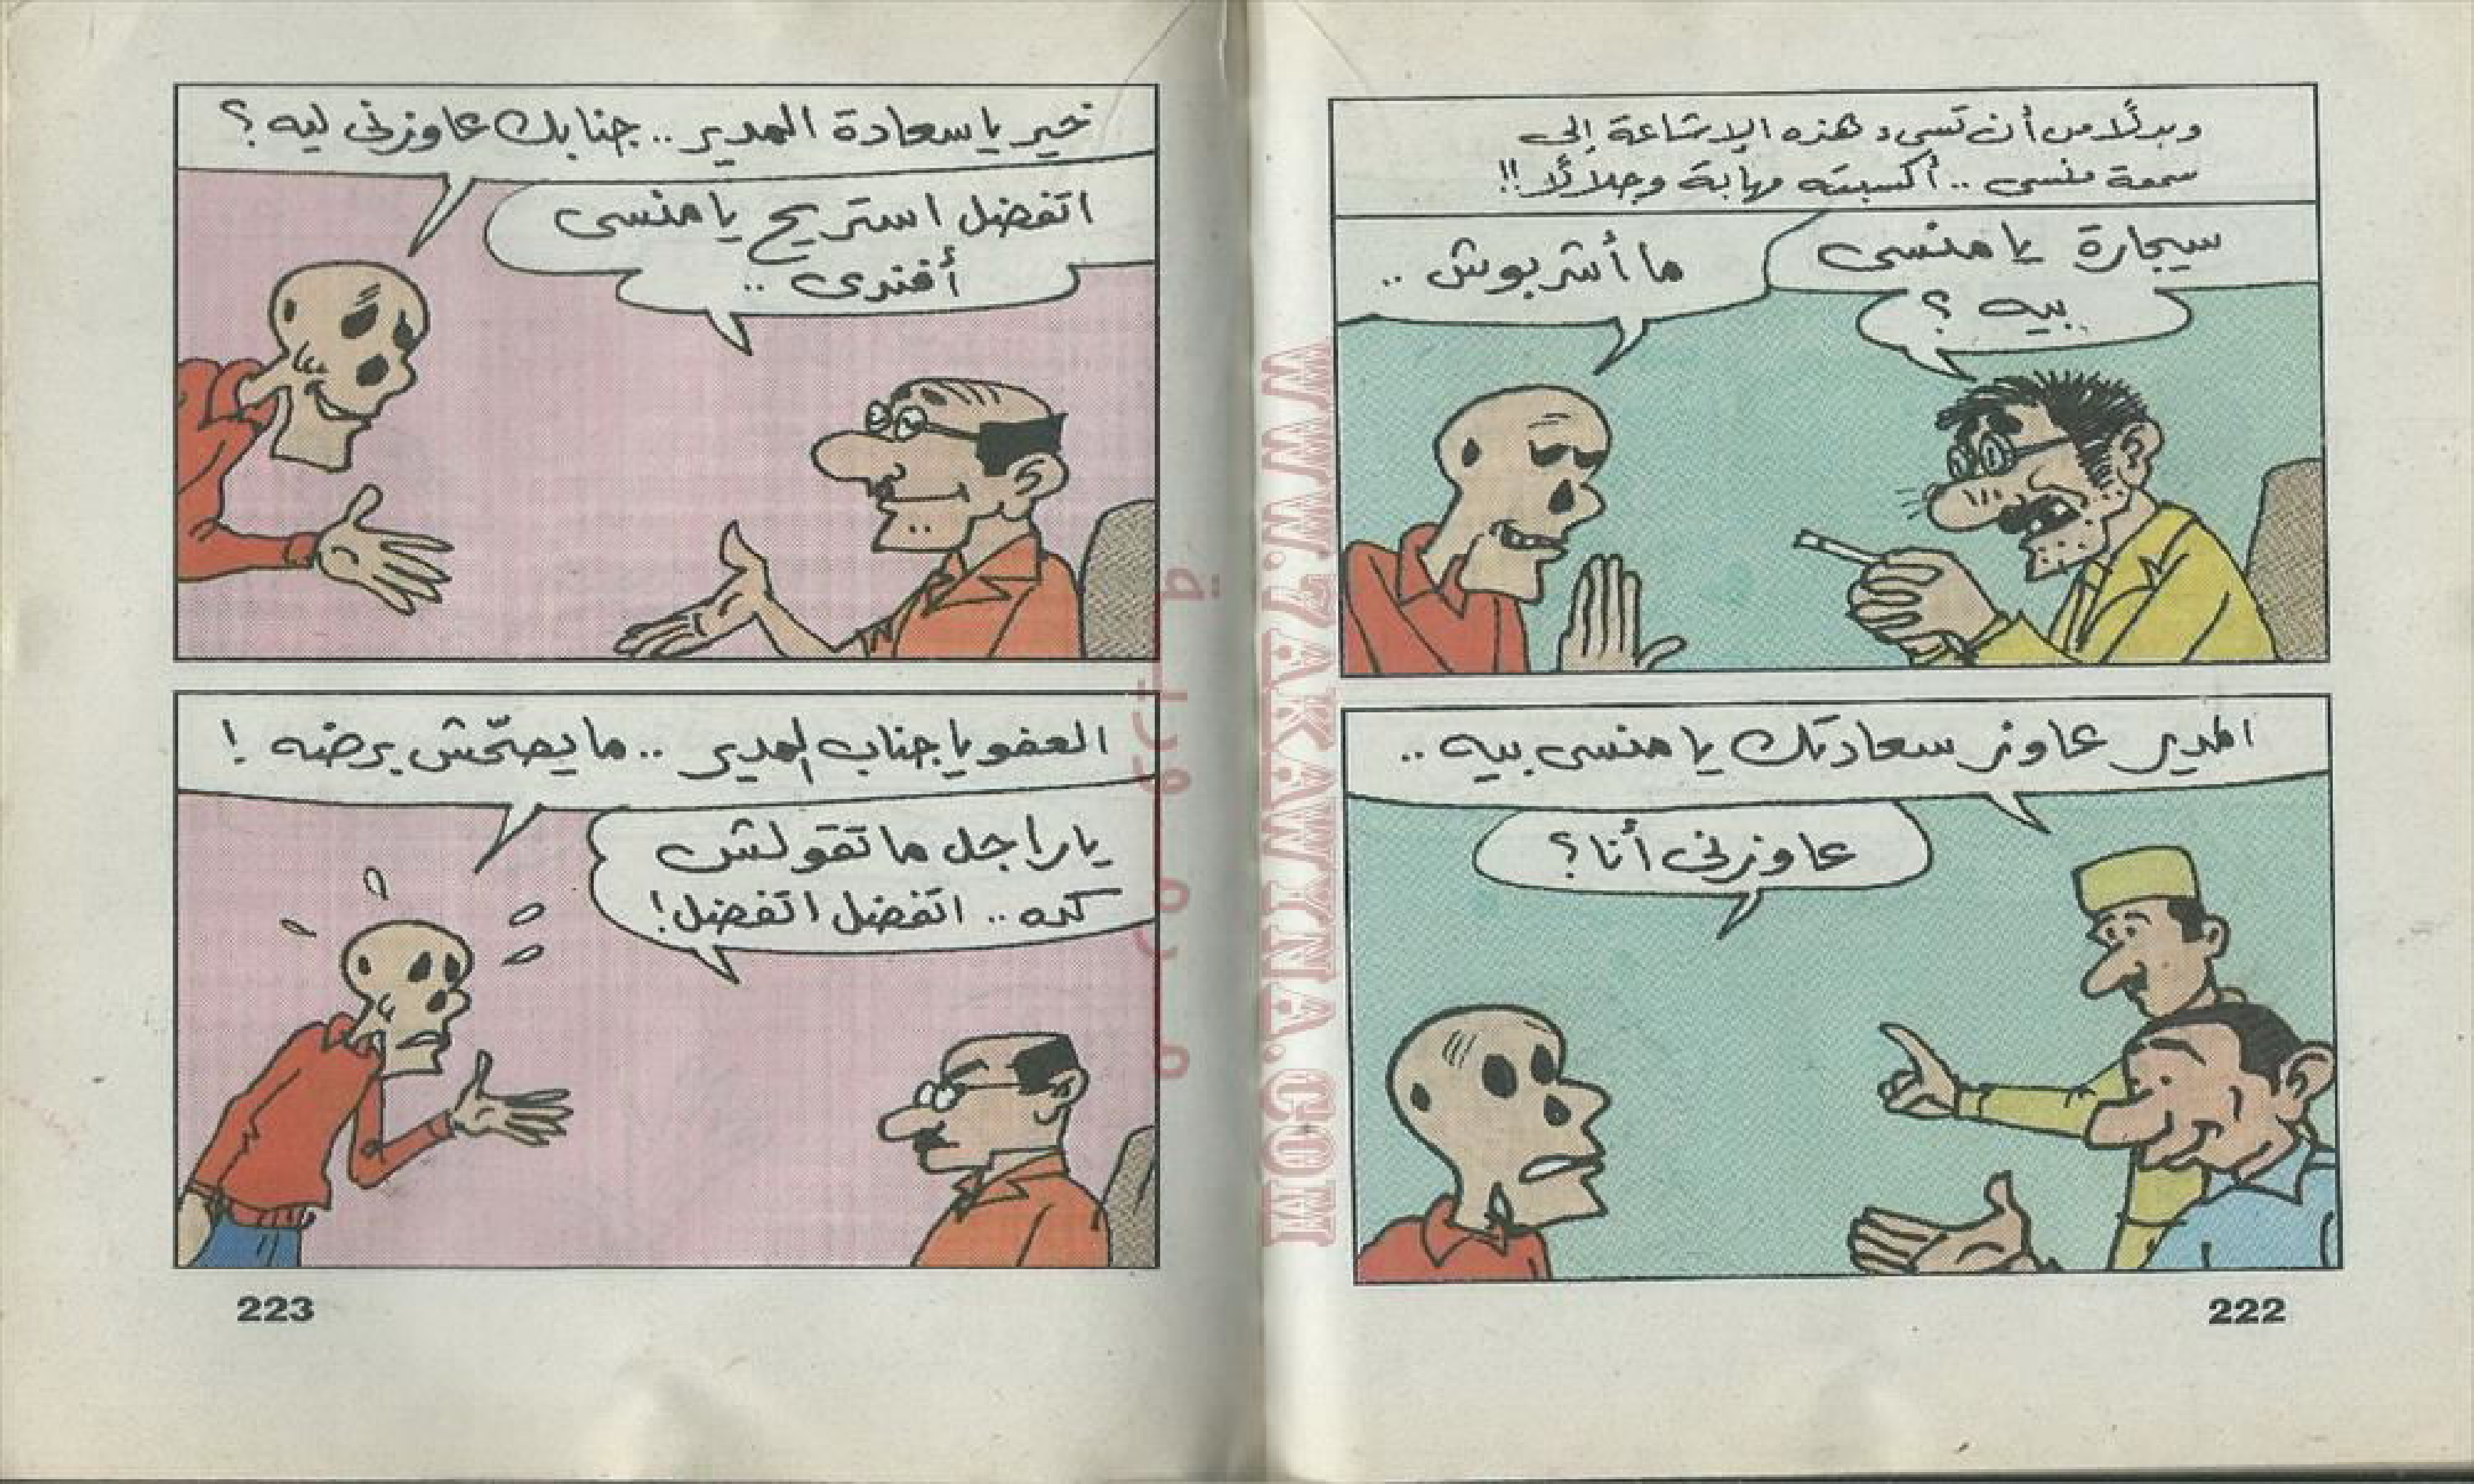 وبدلًا من أن تسىء هذه الإشاعة إلى
سمعة منسى .. أكسبته مهابة وجلالًا !!
سيجارة يا منسى
بيه ؟
ما أشربوش ..
المدير عاوز سعادتك يا منسى بيه ..
عاوزنى أنا ؟
222
خير يا سعادة المدير .. جنابك عاوزنى ليه ؟
اتفضل استريح يا منسى
أفندى ..
العفو يا جناب المدير .. ما يصحّش برضه !
يا راجل ما تقولش
كده .. اتفضل اتفضل !
223
WWW.7AKAWINA.COM